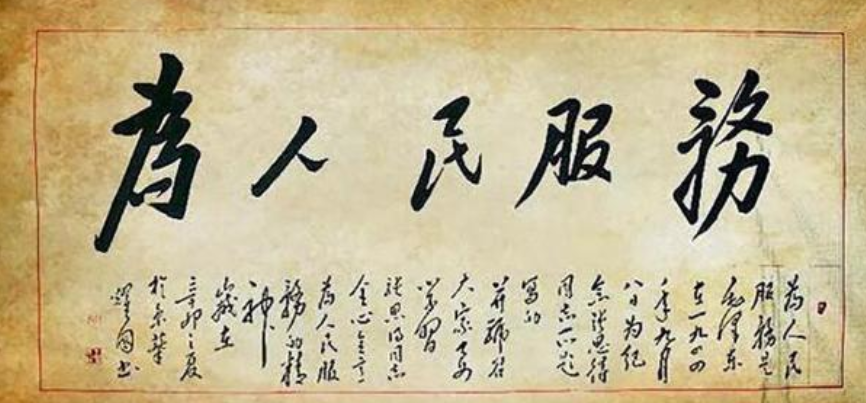 為人民服務
為人民
服務是
毛澤东
在一九四四
年九月
八日为纪
念張思得
同志所题
写的
并號召
大家要
学習
張思得同志
全心全意
為人民服
務的精
神
歲在
辛卯之夏
於京華
国书